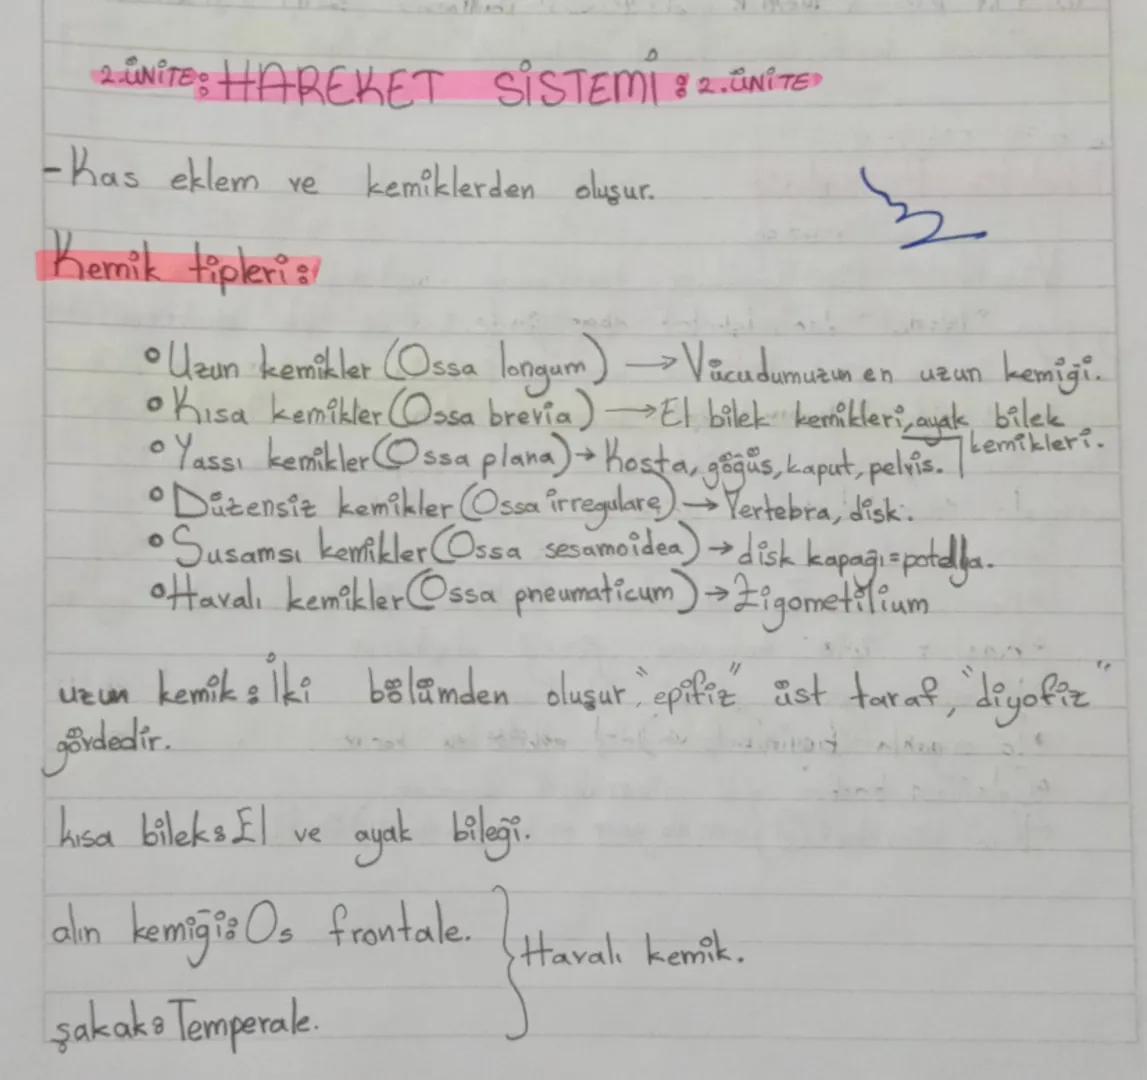 2.ÜNİTE: HAREKET SİSTEMİ: 2.ÜNİTE
-Kas eklem ve kemiklerden oluşur.
Kemik tipleri:
• Uzun kemikler (Ossa longum) → Vücudumuzun en uzun kemiği.
• Kısa kemikler (Ossa brevia) → El bilek kemikleri, ayak bilek kemikleri.
• Yassı kemikler (Ossa plana) → Kosta, göğüs, kaput, pelvis.
• Düzensiz kemikler (Ossa irregulare) → Vertebra, disk.
• Susamsı kemikler (Ossa sesamoidea) → disk kapağı = potella.
• Havalı kemikler (Ossa pneumaticum) → Zigometilium
uzun kemik: İki bölümden oluşur, "epifiz" üst taraf, "diyofiz"
gövdedir.
kısa bilek: El ve ayak bileği.
alın kemiği: Os frontale.
} Havalı kemik.
şakak: Temperale.